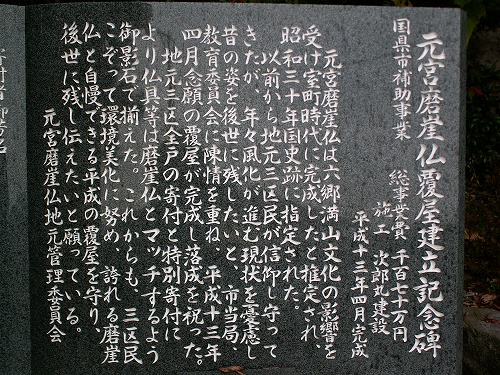 元宮磨崖仏覆屋建立記念碑
国県市補助事業
総事業費 千百七十万円
施工 次郎丸建設
平成十三年四月完成
元宮磨崖仏は六郷満山文化の影響を
受け室町時代に完成したと推定され、
昭和三十年国史跡に指定された。
以前から地元三区民が信仰し守って
きたが、年々風化が進む現状を憂慮し
昔の姿を後世に残したいと、市当局、
教育委員会に陳情を重ね。平成十三年
四月念願の覆屋が完成し落成を祝った。
地元三区全戸の寄付と特別寄付に
より仏具等は磨崖仏とマッチするよう
御影石で揃えた。これからも、三区民
こぞって環境美化に努め、誇れる磨崖
仏と自慢できる平成の覆屋を守り、
後世に残し伝えたいと願っている。
元宮磨崖仏地元管理委員会